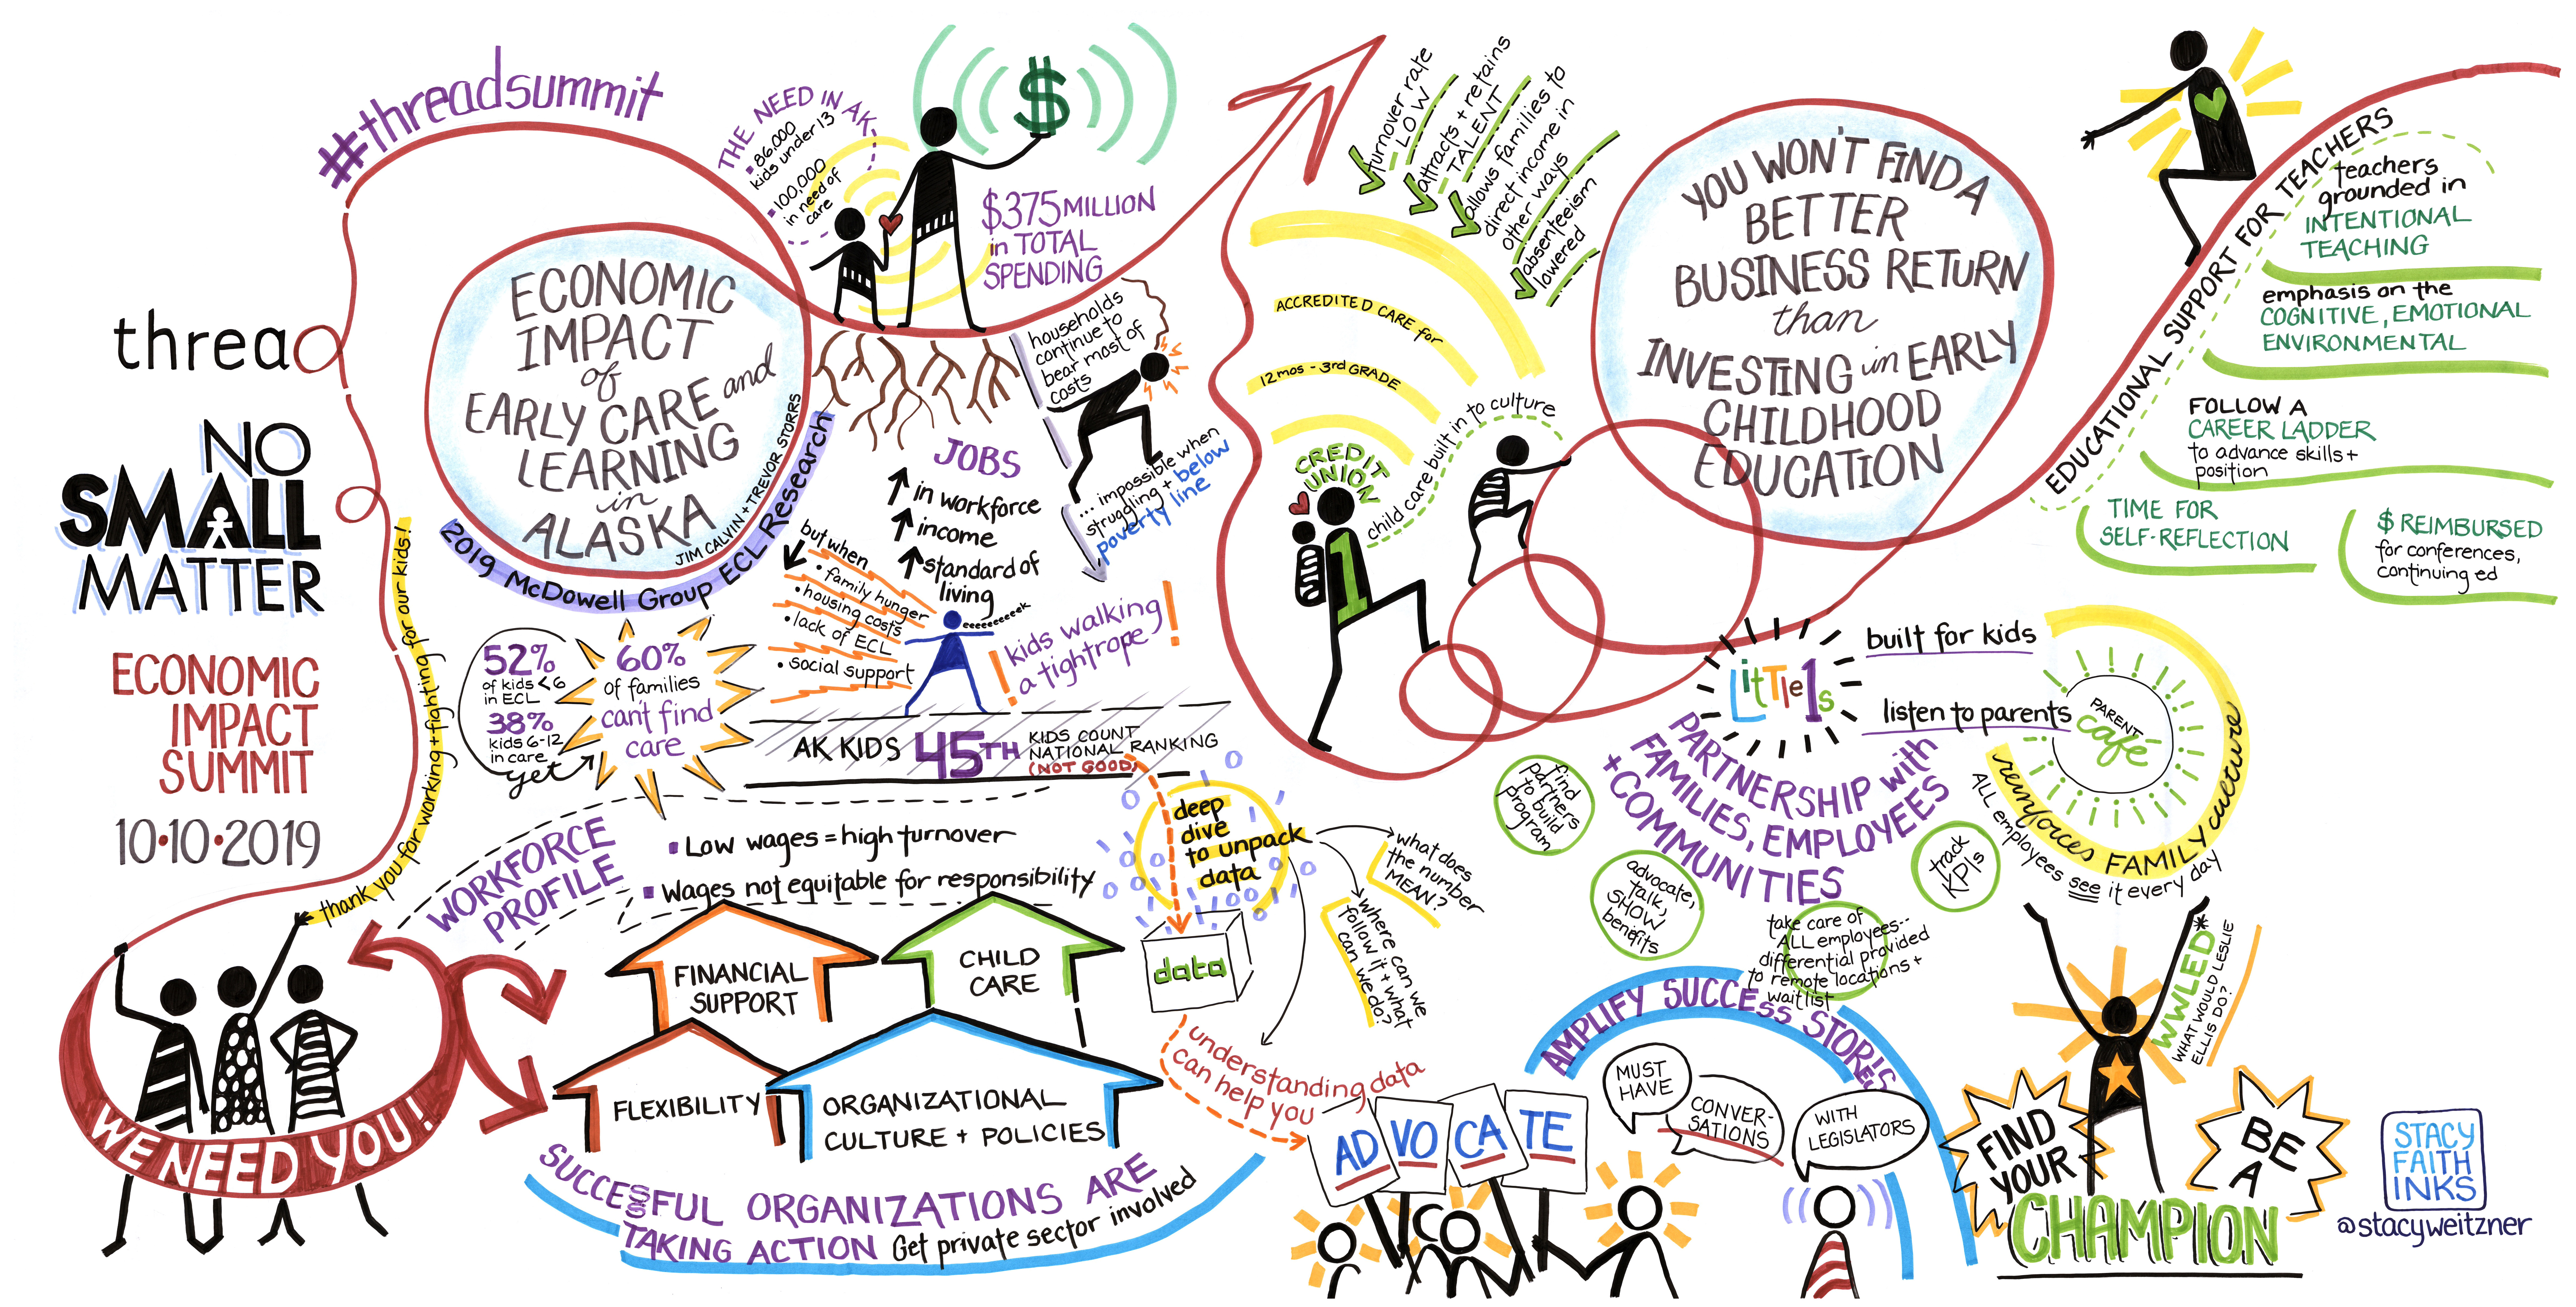 #threadsummit
thread
NO
SMALL
MATTER
ECONOMIC
IMPACT
SUMMIT
10•10•2019
thank you for working + fighting for our kids!
WE NEED YOU!!
ECONOMIC
IMPACT
of
EARLY CARE and
LEARNING
in
ALASKA
JIM CALVIN + TREVOR STORRS
2019 McDowell Group ECL Research
THE NEED IN AK
• 86,000
kids under 13
• 100,000
in need of
care
$
$375 MILLION
in TOTAL
SPENDING
households
continue to
bear most of
costs
... impossible when
struggling + below
poverty line
JOBS
in workforce
income
standard of
living
but when
• family hunger
• housing costs
• lack of ECL
• social support
eeeeeeek
! kids walking
a tightrope !
52%
of kids <6
in ECL
38%
kids 6-12
in care
yet
60%
of families
can't find
care
AK KIDS 45TH KIDS COUNT
NATIONAL RANKING
(NOT GOOD)
WORKFORCE
PROFILE
▪ Low wages = high turnover
▪ Wages not equitable for responsibility
FINANCIAL
SUPPORT
CHILD
CARE
FLEXIBILITY
ORGANIZATIONAL
CULTURE + POLICIES
SUCCESSFUL ORGANIZATIONS ARE
TAKING ACTION Get private sector involved
deep
dive
to unpack
data
data
what does
the number
MEAN?
where can we
follow it + what
can we do?
understanding data
can help you
ADVOCATE
turnover rate
LOW
attracts + retains
TALENT
allows families to
direct income in
other ways
absenteeism
lowered
ACCREDITED CARE for
12 mos - 3rd GRADE
CREDIT
UNION
1
child care built in to culture
YOU WON'T FIND A
BETTER
BUSINESS RETURN
than
INVESTING in EARLY
CHILDHOOD
EDUCATION
EDUCATIONAL SUPPORT FOR TEACHERS
teachers
grounded in
INTENTIONAL
TEACHING
emphasis on the
COGNITIVE, EMOTIONAL
ENVIRONMENTAL
FOLLOW A
CAREER LADDER
to advance skills +
position
TIME FOR
SELF-REFLECTION
$ REIMBURSED
for conferences,
continuing ed
LitTle1s
built for kids
listen to parents
PARENT
café
reinforces FAMILY culture
ALL employees see it every day
PARTNERSHIP with
FAMILIES, EMPLOYEES
+ COMMUNITIES
find
partners
to build
program
advocate,
talk,
SHOW
benefits
track
KPIs
take care of
ALL employees--
differential provided
to remote locations +
waitlist
AMPLIFY SUCCESS STORIES
MUST
HAVE
CONVER-
SATIONS
WITH
LEGISLATORS
WWLED*
WHAT WOULD LESLIE
ELLIS DO?
FIND
YOUR
BE
A
CHAMPION
STACY
FAITH
INKS
@stacyweitzner